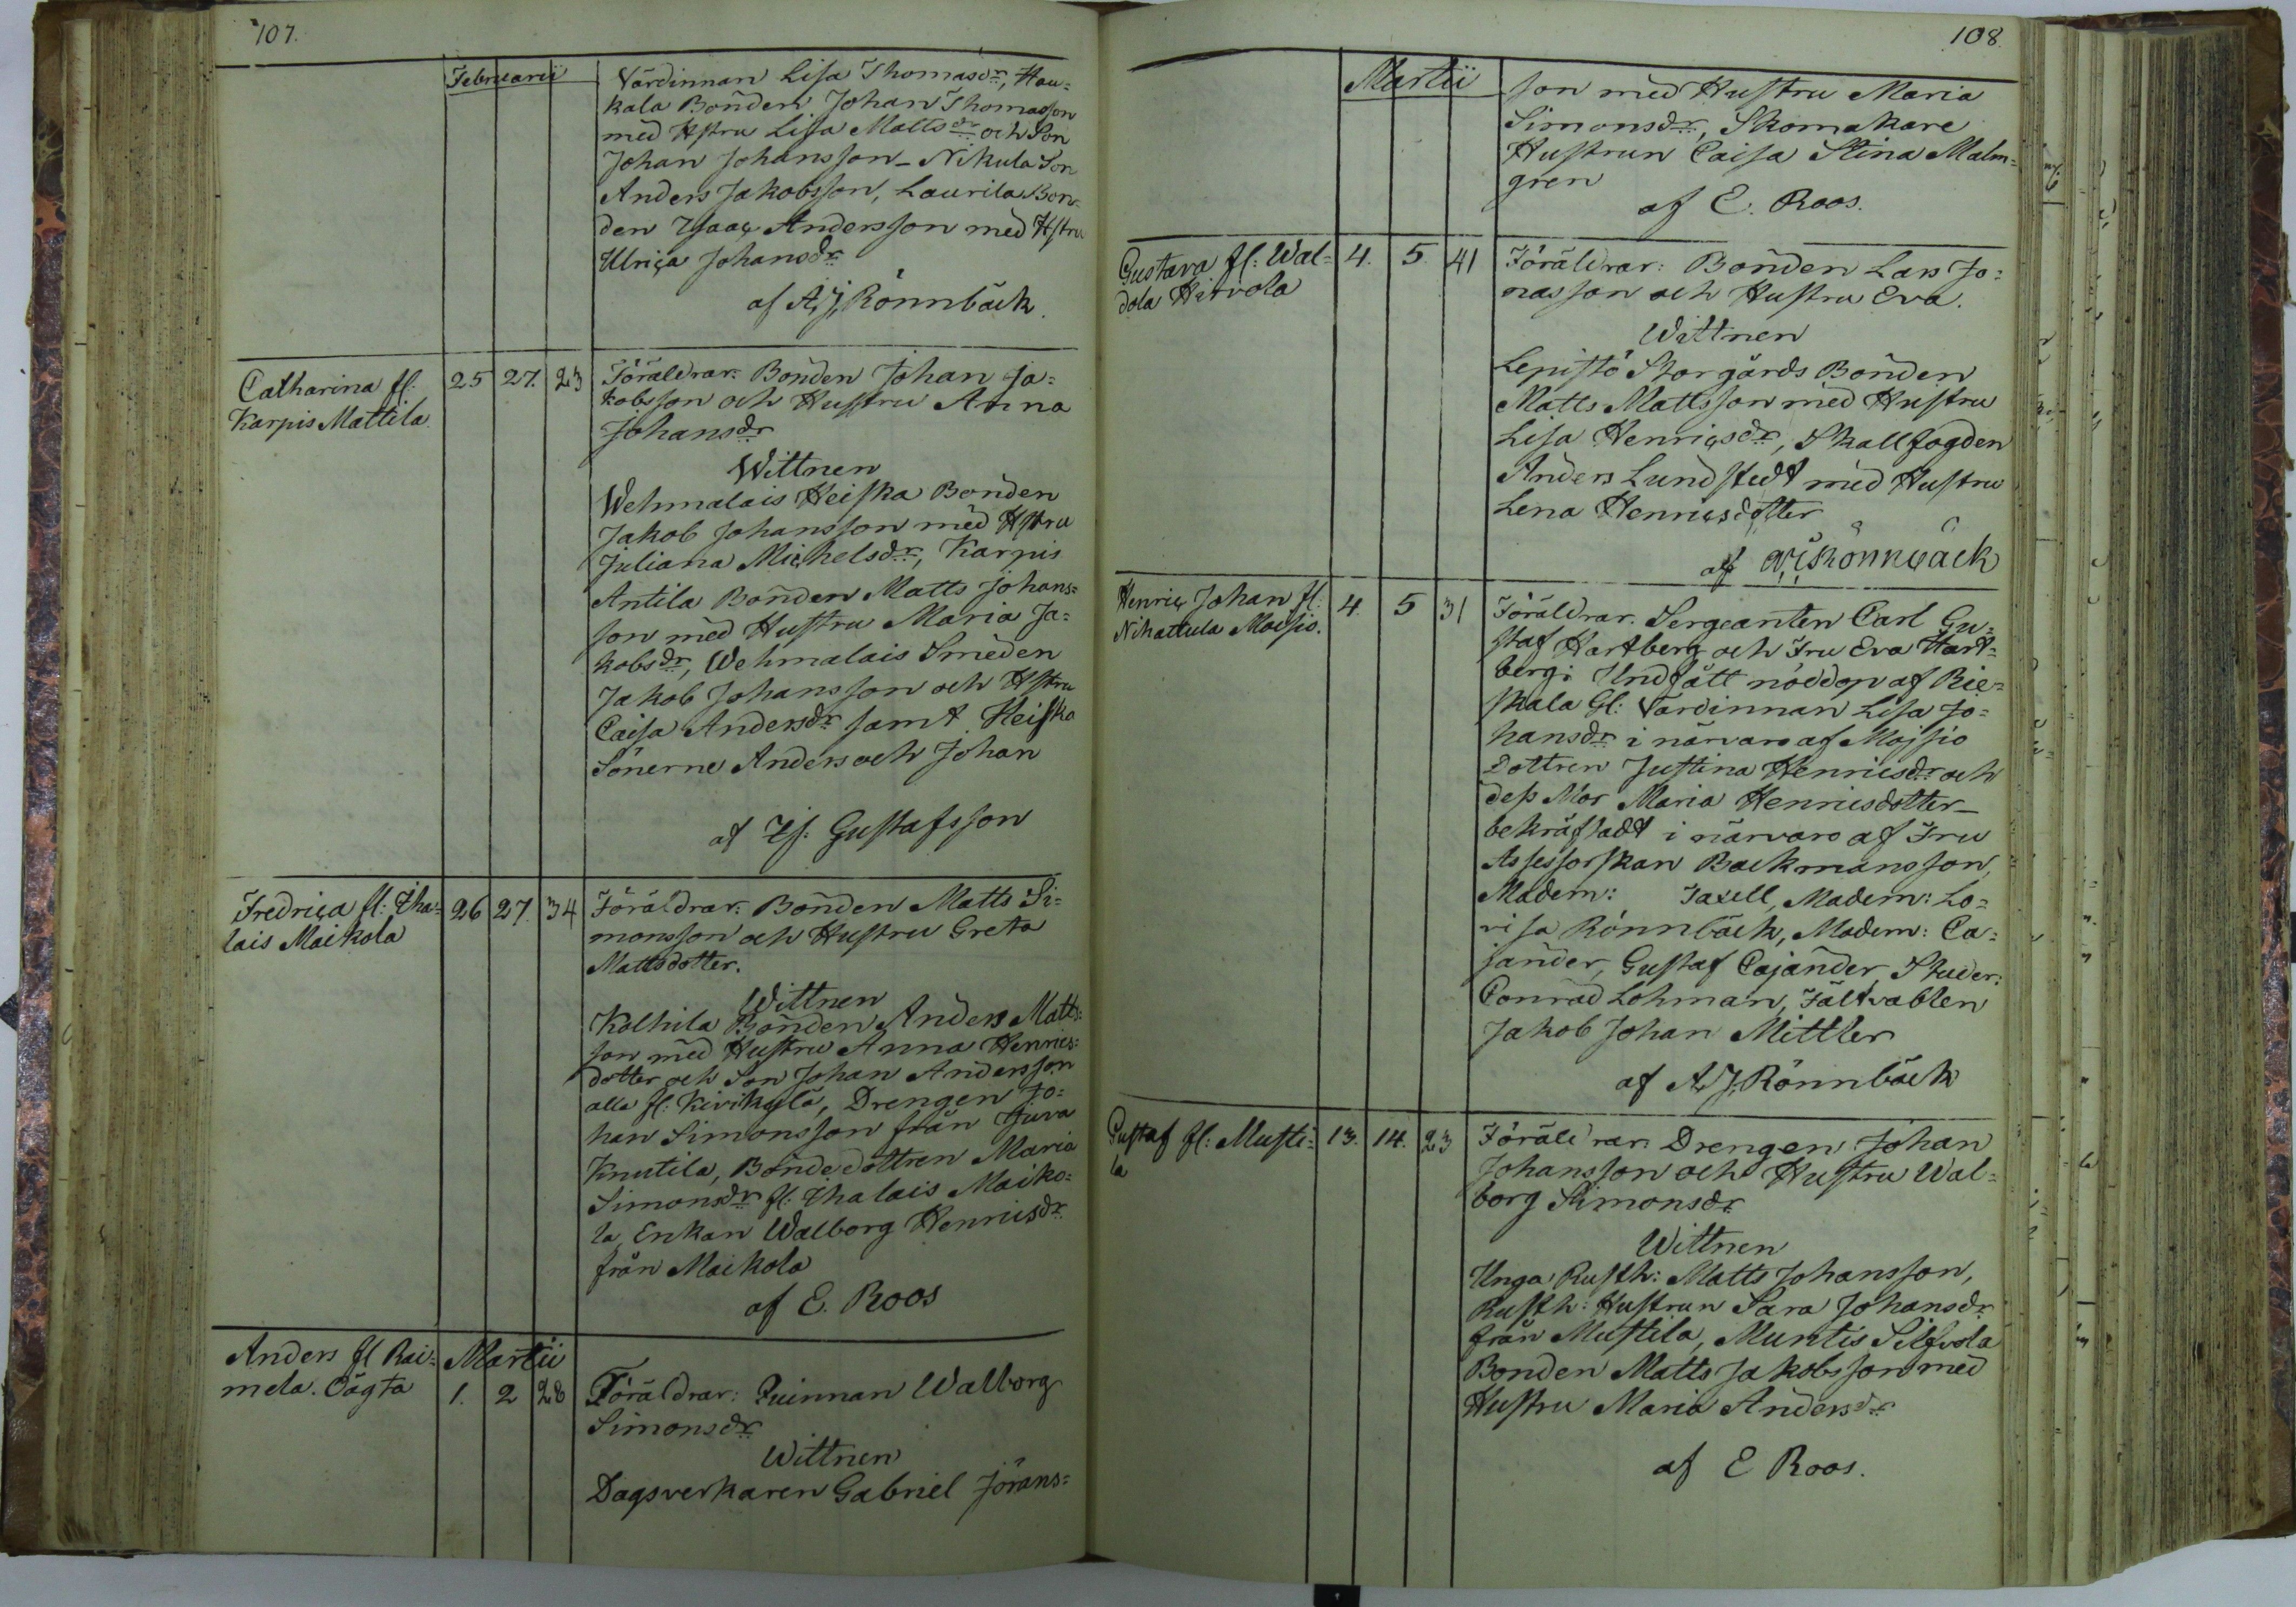 107.
Februarii
Värdinnan Lisa Thomasdr, Hau=
kala Bonden Johan Thomasson
med Hstru Lisa Mattsdr och Son
Johan Johansson - Nikula Son
Anders Jakobsson, Laurila Bon=
den Isaac Andersson med Hstru
Ulrica Johansdr
af A. J. Rönnbäck.
Catharina fl. 25 27. 23 Föräldrar: Bonden Johan Ja=
Karpis Mattila. kobsson och Hustru Anna
Johansdr
Wittnen
Wehmalais Heiska Bonden
Jakob Johansson med Hstru
Juliana Michelsdr, Karpis
Antila Bonden Matts Johans=
son med Hustru Maria Ja=
kobsdr, Wehmalais Smeden
Jakob Johansson och Hstru
Caisa Andersdr samt Heiska
Sönerne Anders och Johan
af Is. Gustafsson
Fredrica fl: Iha= 26 27. 34 Föräldrar: Bonden Matts Si=
lais Maikola monsson och Hustru Greta
Mattsdotter.
Wittnen
Kolhila Bonden Anders Matts=
son med Hustru Anna Henrics=
dotter och Son Johan Andersson
alla fl: Kivikylä, Drengen Jo=
han Simonsson från Juva
Knutila, Bondedottren Maria
Simonsdr fl. Ihalais Maiko=
la, Enkan Walborg Henricsdr
från Maikola
af E. Roos
Anders fl Rai= Martii
mela. Oägta 1. 2 28 Föräldrar: Quinnan Walborg
Simonsdr
Wittnen
Dagsverkaren Gabriel Jörans=
108.
Martii
son med Hustru Maria
Simonsdr, Skomakare
Hustrun Caisa Stina Malm=
gren
af E. Roos.
Gustava fl: Wal= 4. 5. 41 Föräldrar: Bonden Lars Jo=
dola Hirvola nasson och Hustru Eva.
Wittnen
Lepistö Storgårds Bonden
Matts Mattsson med Hustru
Lisa Henricsdr, Skallfogden
Anders Lundstedt med Hustru
Lena Henricsdotter
af A. J. Rönnbäck
Henric Johan fl. 4. 5 31 Föräldrar. Sergeanten Carl Gu=
Nihattula Moisio. staf Hartberg och Fru Eva Hart=
berg: Undfått nöddop af Rie=
skala Gl: Värdinnan Lisa Jo=
hansdr i närvaro af Mojsio
Dottren Justina Henricsdr och
dess Mor Maria Henricsdotter _
bekräftadt i närvaro af Fru
Assessorskan Backmansson,
Madem: Taxell, Madem: Lo=
visa Rönnbäck, Madem: Ca=
jander, Gustaf Cajander, Studer:
Conrad Lohman, Fältvablen
Jakob Johan Mittler
af A. J. Rönnbäck
Gustaf fl: Musti= 13. 14. 23 Föräldrar. Drengen Johan
la Johansson och Hustru Wal=
borg Simonsdr
Wittnen
Unga Rusth: Matts Johansson,
Rusth: Hustrun Sara Johansdr
från Mustila, Muntis Silfvola
Bonden Matts Jakobsson med
Hustru Maria Andersdr
af E Roos.